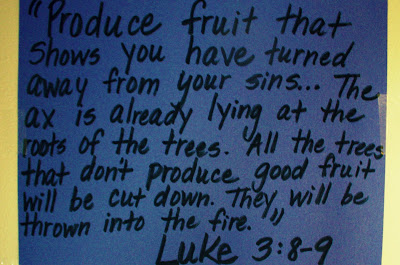 "Produce fruit that
shows you have turned
away from your sins... The
ax is already lying at the
roots of the trees. All the trees
that don't produce good fruit
will be cut down. They will be
thrown into the fire."
Luke 3:8-9